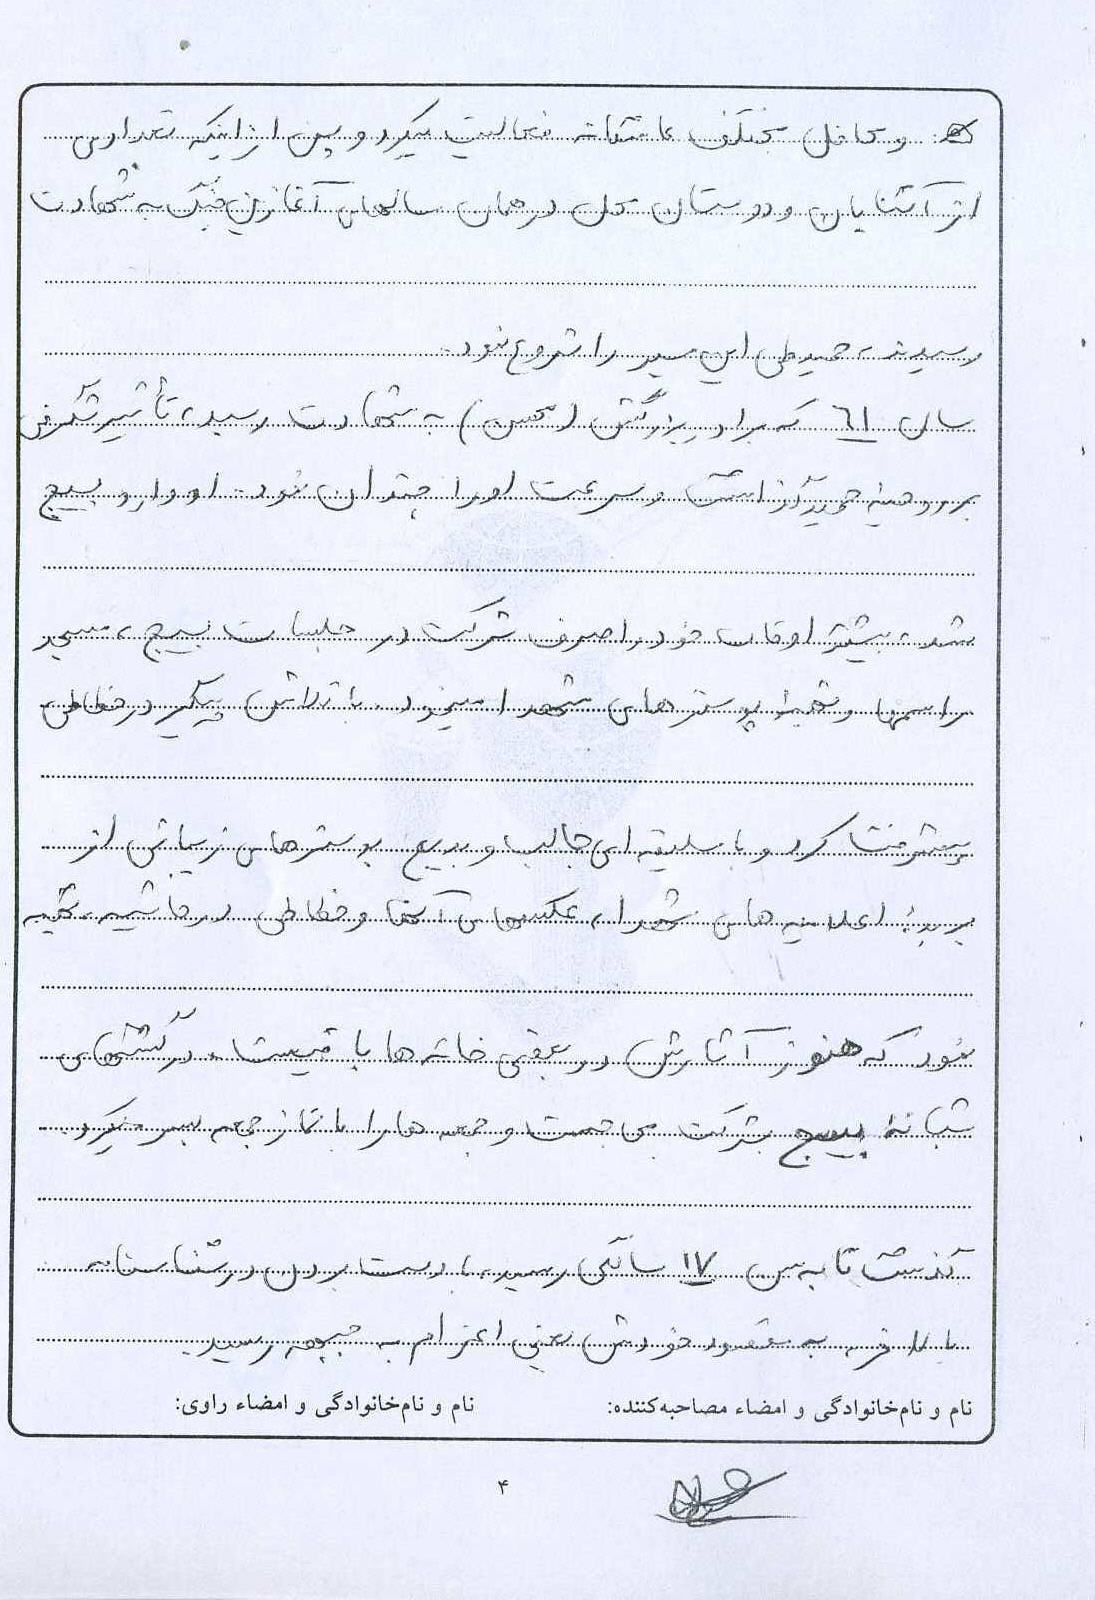 و محافل مختلف عاشقانه فعالیت میکرد و پس از اینکه تعدادی
از آشنایان و دوستان محل در همان سالهای آغازین جنگ به شهادت
رسیدند، حمید طی این مسیر را شروع نمود.
سال ٦١ که برادر بزرگش (محسن) به شهادت رسید، تأثیر شگرفی
بر روحیه حمید گذاشت و سرعت او را چندان نمود. او وارد بسیج
شد، بیشتر اوقات خود را صرف شرکت در جلسات بسیج، مسجد
مراسمها و تهیه پوسترهای شهدا مینمود. با تلاش پیگیر در خطاطی
پیشرفت کرد و با سلیقه ای جالب و بدیع پوسترهای زیبائی از
بریدهٔ اعلامیه های شهدا، عکسهای آنها و خطاطی در حاشیه، تهیه
نمود که هنوز آثارش در بعضی خانه ها باقیست. در گشتهای
شبانهٔ بسیج شرکت می جست و جمعه ها را با نماز جمعه سپری میکرد.
گذشت تا به سن ۱۷ سالگی رسید، با دست بردن در شناسنامه
بالاخره به مقصود خودش یعنی اعزام به جبهه رسید.
نام و نام‌خانوادگی و امضاء مصاحبه‌کننده: نام و نام‌خانوادگی و امضاء راوی:
۴